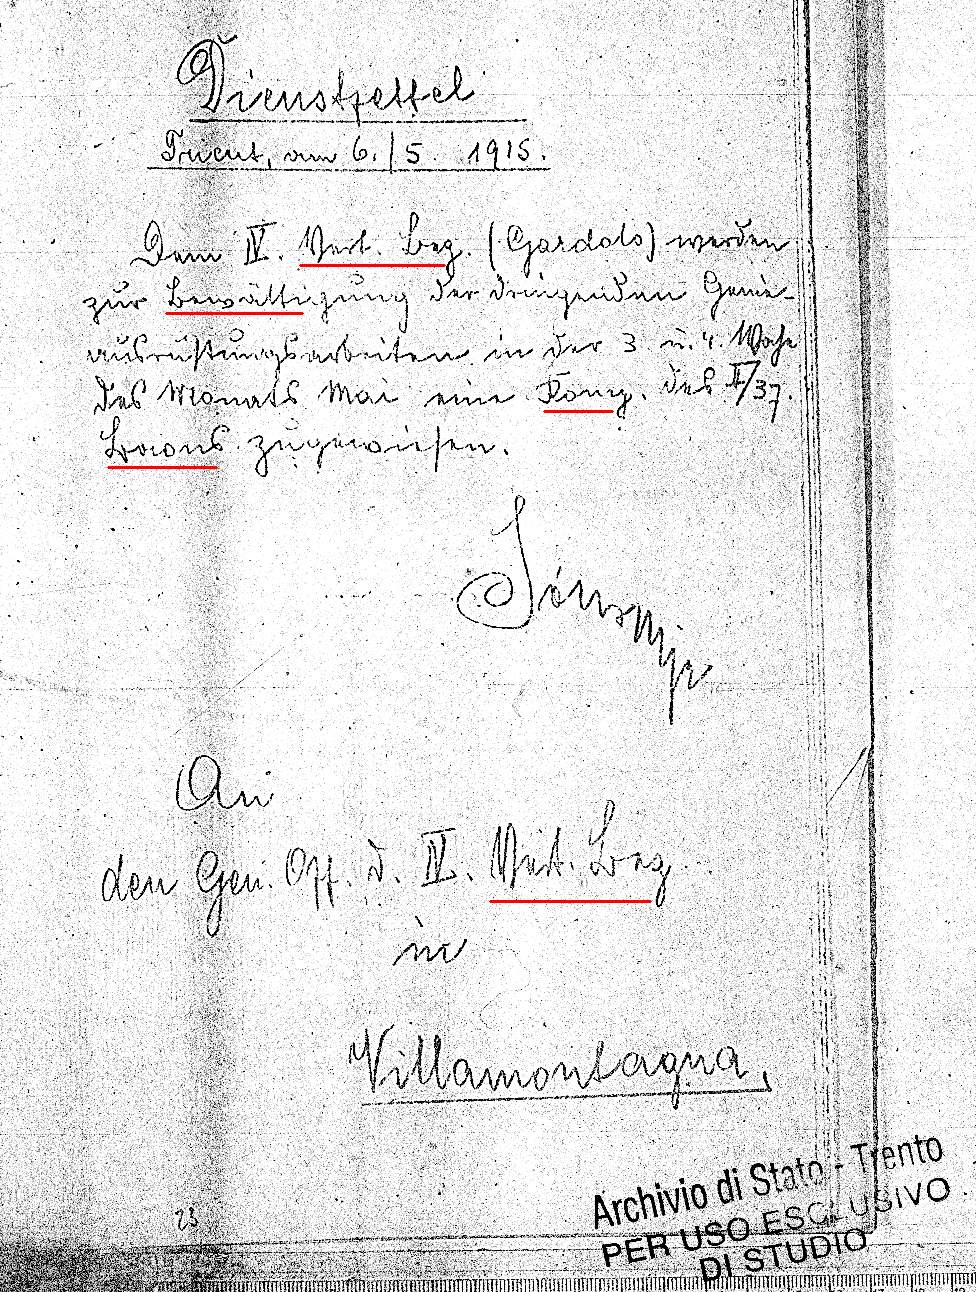 Dienstzettel
Trient, am 6./5. 1915.
Dem IV. Vert. Bez. (Gardolo) werden
zur Bewältigung der dringenden Genie-
ausrüstungsarbeiten in der 3. u. 4. Woche
des Monats Mai eine Komp. des II/37.
Baons zugewiesen.
An
den Gen. Off. d. IV. Vert. Bez.
in
Villamontagna,
23
Archivio di Stato - Trento
PER USO ESCLUSIVO
DI STUDIO